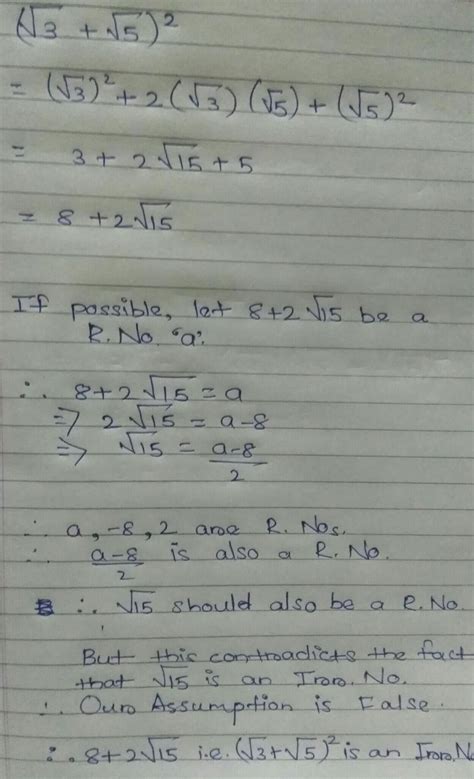 (√3 + √5)²
= (√3)² + 2(√3)(√5) + (√5)²
= 3 + 2√15 + 5
= 8 + 2√15
If possible, let 8+2√15 be a
R. No. "a".
∴ 8+2√15 = a
⇒ 2√15 = a-8
⇒ √15 = a-8/2
∴ a, -8, 2 aroe R. Nos.
∴ a-8/2 is also a R. No.
∴ √15 should also be a R. No
But this controadicts the fact
that √15 is an Iroro. No.
∴ Ouro Assumption is False.
∴ 8+2√15 i.e. (√3+√5)² is an Iroro. N